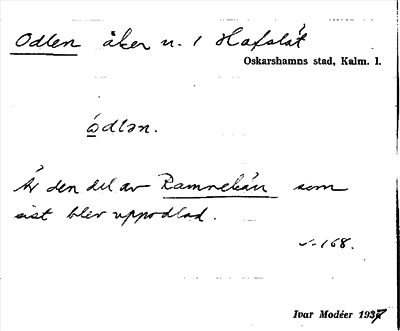 Odlen åker n. 1 Hafslät
Oskarshamns stad, Kalm. l.
òdlən.
Är den del av Ramnekärr som
sist blev uppodlad.
s. 168.
Ivar Modéer 1937